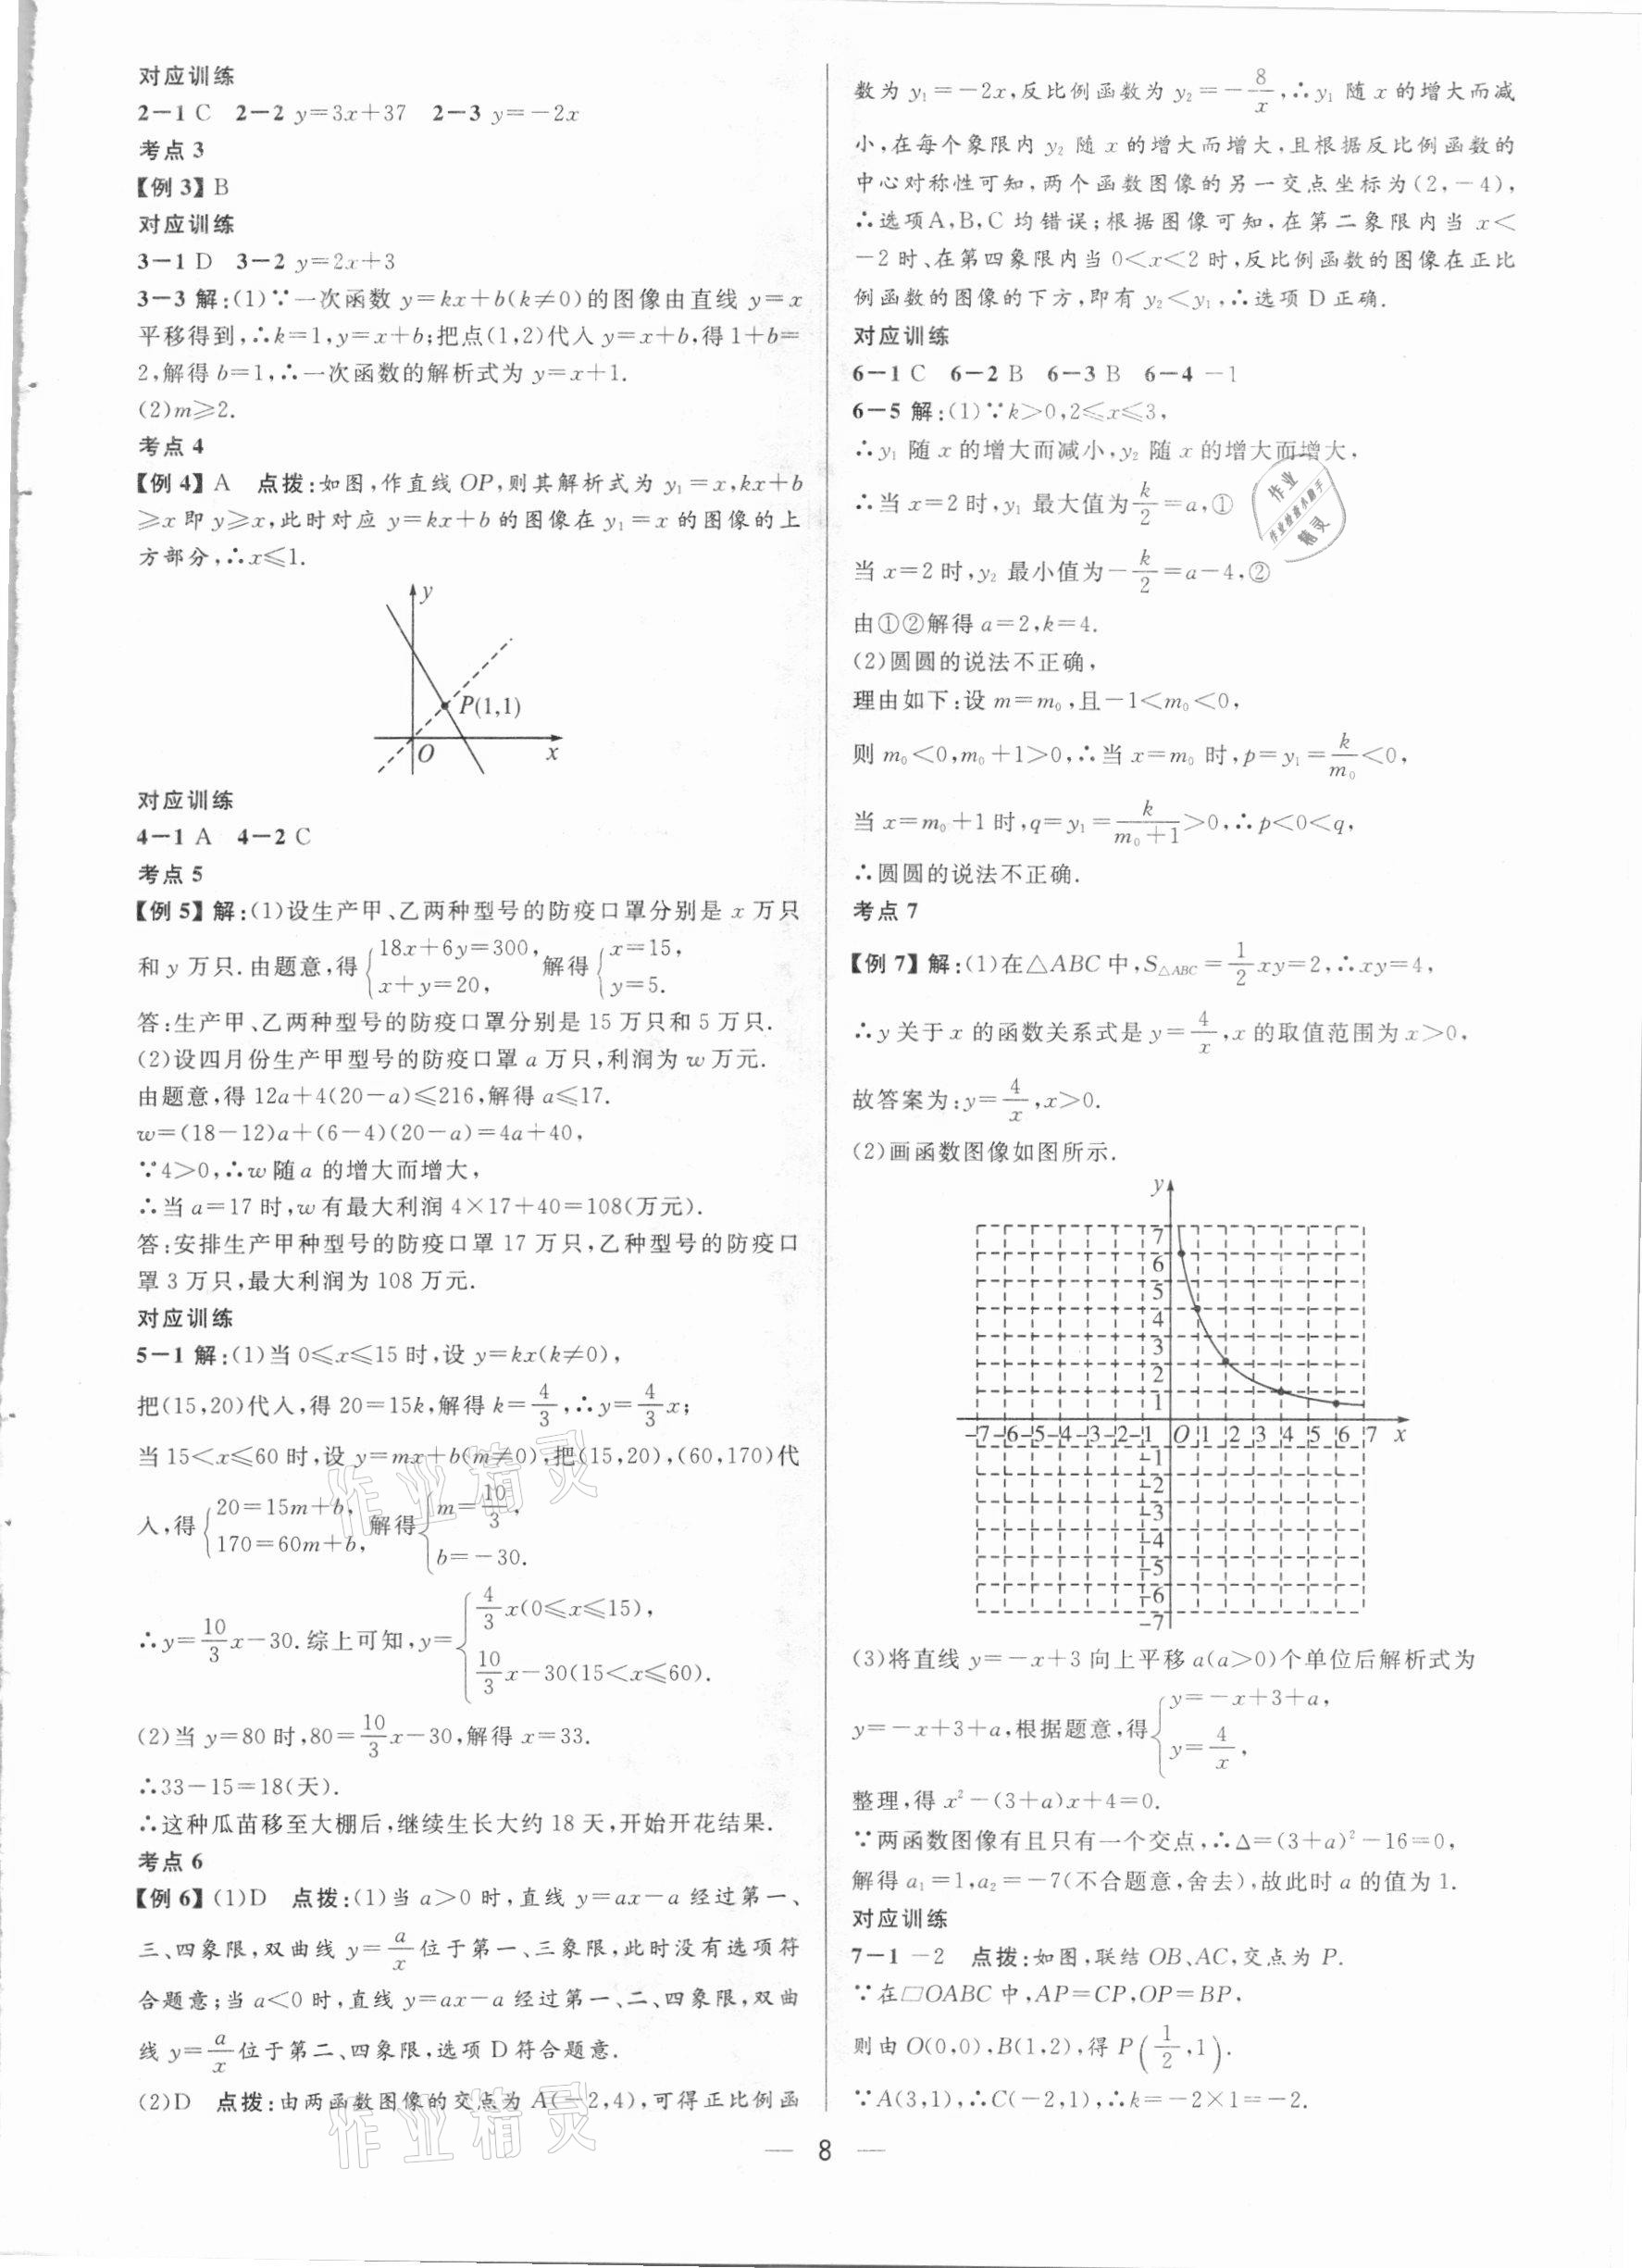 对应训练
2-1 C 2-2 y=3x+37 2-3 y=-2x
考点 3
【例 3】B
对应训练
3-1 D 3-2 y=2x+3
3-3 解:(1)∵一次函数 y=kx+b(k≠0)的图像由直线 y=x
平移得到,∴k=1,y=x+b;把点(1,2)代入 y=x+b,得 1+b=
2,解得 b=1,∴一次函数的解析式为 y=x+1.
(2)m⩾2.
考点 4
【例 4】A 点拨:如图,作直线 OP,则其解析式为 y₁=x,kx+b
⩾x 即 y⩾x,此时对应 y=kx+b 的图像在 y₁=x 的图像的上
方部分,∴x⩽1.
y
P(1,1)
O x
对应训练
4-1 A 4-2 C
考点 5
【例 5】解:(1)设生产甲、乙两种型号的防疫口罩分别是 x 万只
和 y 万只.由题意,得{18x+6y=300, x+y=20, 解得{x=15, y=5.
答:生产甲、乙两种型号的防疫口罩分别是 15 万只和 5 万只.
(2)设四月份生产甲型号的防疫口罩 a 万只,利润为 w 万元.
由题意,得 12a+4(20-a)⩽216,解得 a⩽17.
w=(18-12)a+(6-4)(20-a)=4a+40,
∵4>0,∴w 随 a 的增大而增大,
∴当 a=17 时,w 有最大利润 4×17+40=108(万元).
答:安排生产甲种型号的防疫口罩 17 万只,乙种型号的防疫口
罩 3 万只,最大利润为 108 万元.
对应训练
5-1 解:(1)当 0⩽x⩽15 时,设 y=kx(k≠0),
把(15,20)代入,得 20=15k,解得 k=4/3,∴y=4/3x;
当 15<x⩽60 时,设 y=mx+b(m≠0),把(15,20),(60,170)代
入,得{20=15m+b, 170=60m+b, 解得{m=10/3, b=-30.
∴y=10/3x-30.综上可知,y={4/3x(0⩽x⩽15), 10/3x-30(15<x⩽60).
(2)当 y=80 时,80=10/3x-30,解得 x=33.
∴33-15=18(天).
∴这种瓜苗移至大棚后,继续生长大约 18 天,开始开花结果.
考点 6
【例 6】(1)D 点拨:(1)当 a>0 时,直线 y=ax-a 经过第一、
三、四象限,双曲线 y=a/x位于第一、三象限,此时没有选项符
合题意;当 a<0 时,直线 y=ax-a 经过第一、二、四象限,双曲
线 y=a/x位于第二、四象限,选项 D 符合题意.
(2)D 点拨:由两函数图像的交点为 A(-2,4),可得正比例函
数为 y₁=-2x,反比例函数为 y₂=-8/x,∴y₁ 随 x 的增大而减
小,在每个象限内 y₂ 随 x 的增大而增大,且根据反比例函数的
中心对称性可知,两个函数图像的另一交点坐标为(2,-4),
∴选项A,B,C 均错误;根据图像可知,在第二象限内当 x<
-2 时、在第四象限内当 0<x<2 时,反比例函数的图像在正比
例函数的图像的下方,即有 y₂<y₁,∴选项 D 正确.
对应训练
6-1 C 6-2 B 6-3 B 6-4 -1
6-5 解:(1)∵k>0,2⩽x⩽3,
∴y₁ 随 x 的增大而减小,y₂ 随 x 的增大而增大,
∴当 x=2 时,y₁ 最大值为k/2=a,①
当 x=2 时,y₂ 最小值为-k/2=a-4,②
由①②解得 a=2,k=4.
(2)圆圆的说法不正确,
理由如下:设 m=m₀,且-1<m₀<0,
则 m₀<0,m₀+1>0,∴当 x=m₀ 时,p=y₁=k/m₀<0,
当 x=m₀+1 时,q=y₁=k/(m₀+1)>0,∴p<0<q,
∴圆圆的说法不正确.
考点 7
【例 7】解:(1)在△ABC 中,S△ABC=1/2xy=2,∴xy=4,
∴y 关于 x 的函数关系式是 y=4/x,x 的取值范围为 x>0,
故答案为:y=4/x,x>0.
(2)画函数图像如图所示.
y
7
6
5
4
3
2
1
-7-6-5-4-3-2-1 O 1 2 3 4 5 6 7 x
-1
-2
-3
-4
-5
-6
-7
(3)将直线 y=-x+3 向上平移 a(a>0)个单位后解析式为
y=-x+3+a,根据题意,得{y=-x+3+a, y=4/x,
整理,得 x²-(3+a)x+4=0.
∵两函数图像有且只有一个交点,∴Δ=(3+a)²-16=0,
解得 a₁=1,a₂=-7(不合题意,舍去),故此时 a 的值为 1.
对应训练
7-1 -2 点拨:如图,联结 OB、AC,交点为 P.
∵在□OABC 中,AP=CP,OP=BP,
则由 O(0,0),B(1,2),得 P(1/2,1).
∵A(3,1),∴C(-2,1),∴k=-2×1=-2.
— 8 —
作业
作业检查小助手
精灵
作业精灵
作业精灵